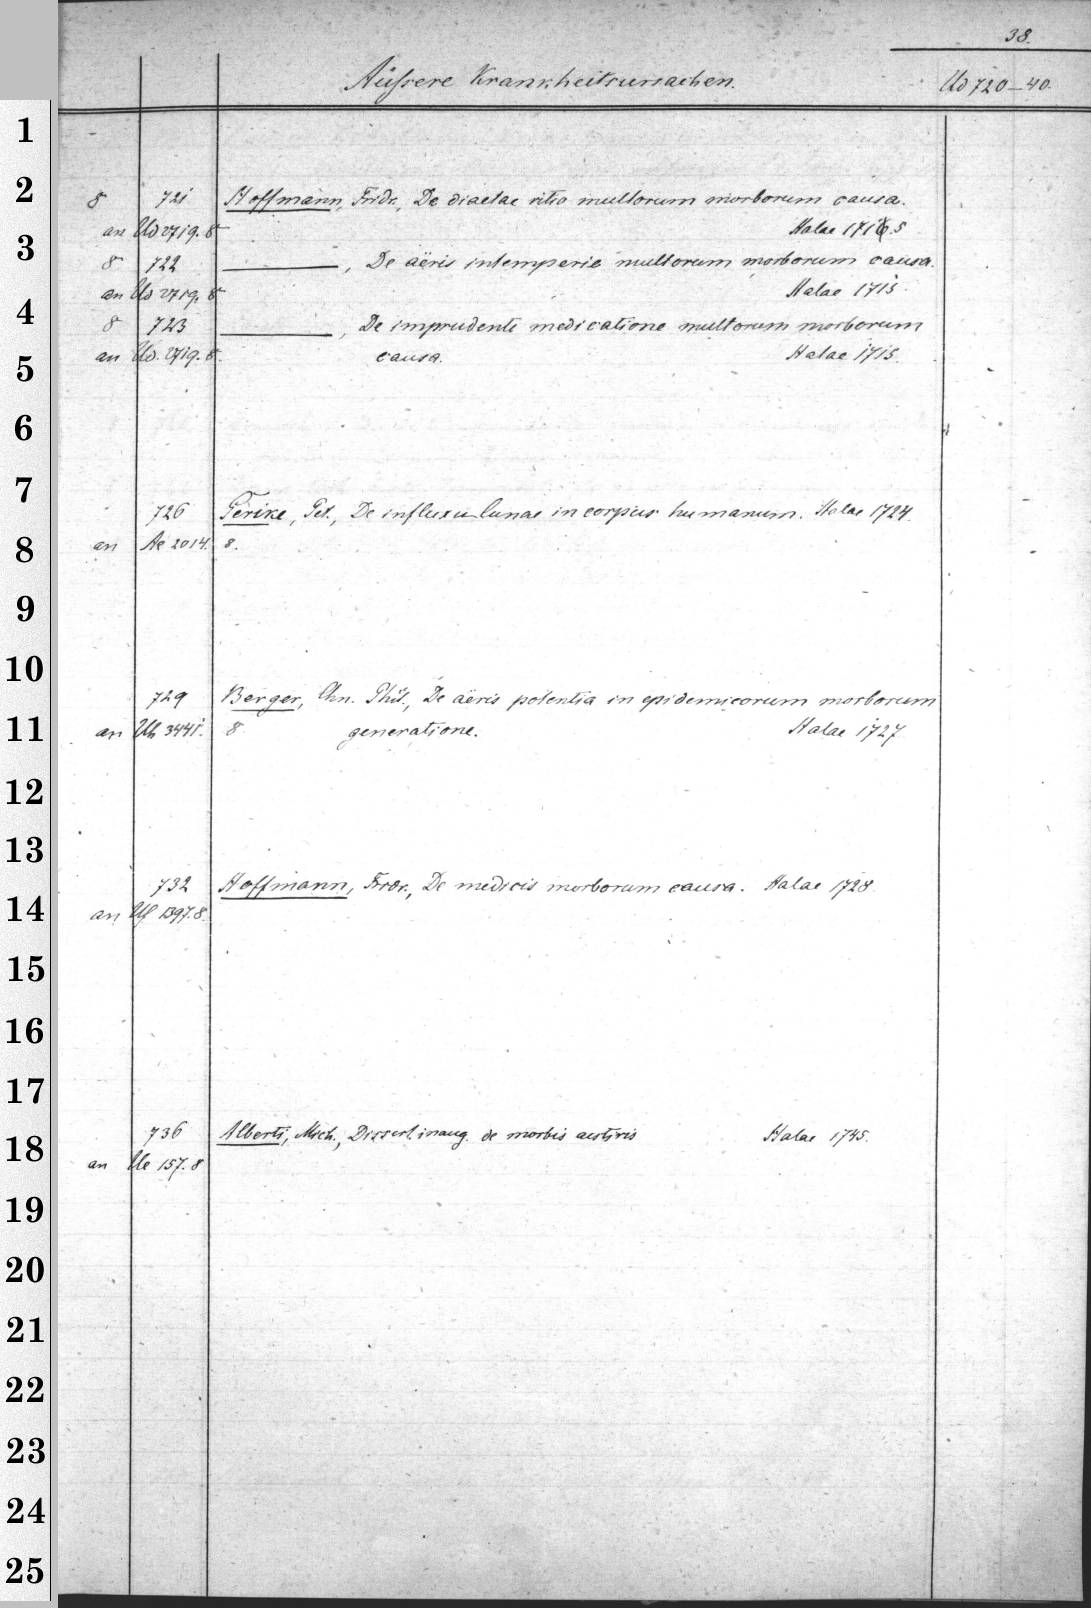 38.
Äußere Krankheitsursachen. Ud 720–40.
1
2
3
4
5
6
7
8
9
10
11
12
13
14
15
16
17
18
19
20
21
22
23
24
25
8 721 Hoffmann, Fridr., De diaetae vitio multorum morborum causa.
an Ud 2719. 8 Halae 1715
8 722 ———, De aëris intemperie multorum morborum causa.
an Ud 2719. 8 Halae 1715
8 723 ———, De imprudenti medicatione multorum morborum
an Ud. 2719. 8. causa. Halae 1715.
726 Gerike, Pet., De influxu lunae in corpus humanum. Halae 1724.
an Ae 2014. 8.
729 Berger, Chn. Phil., De aëris potentia in epidemicorum morborum
an Uh 3441. 8 generatione. Halae 1727
732 Hoffmann, Frdr., De medicis morborum causa. Halae 1728.
an Uf 1397. 8.
736 Alberti, Mich., Dissert. inaug. de morbis aestivis Halae 1745.
an Ue 157. 8